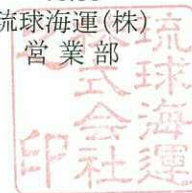 琉球海運(株)
営業部
琉球海運
株式会社
印